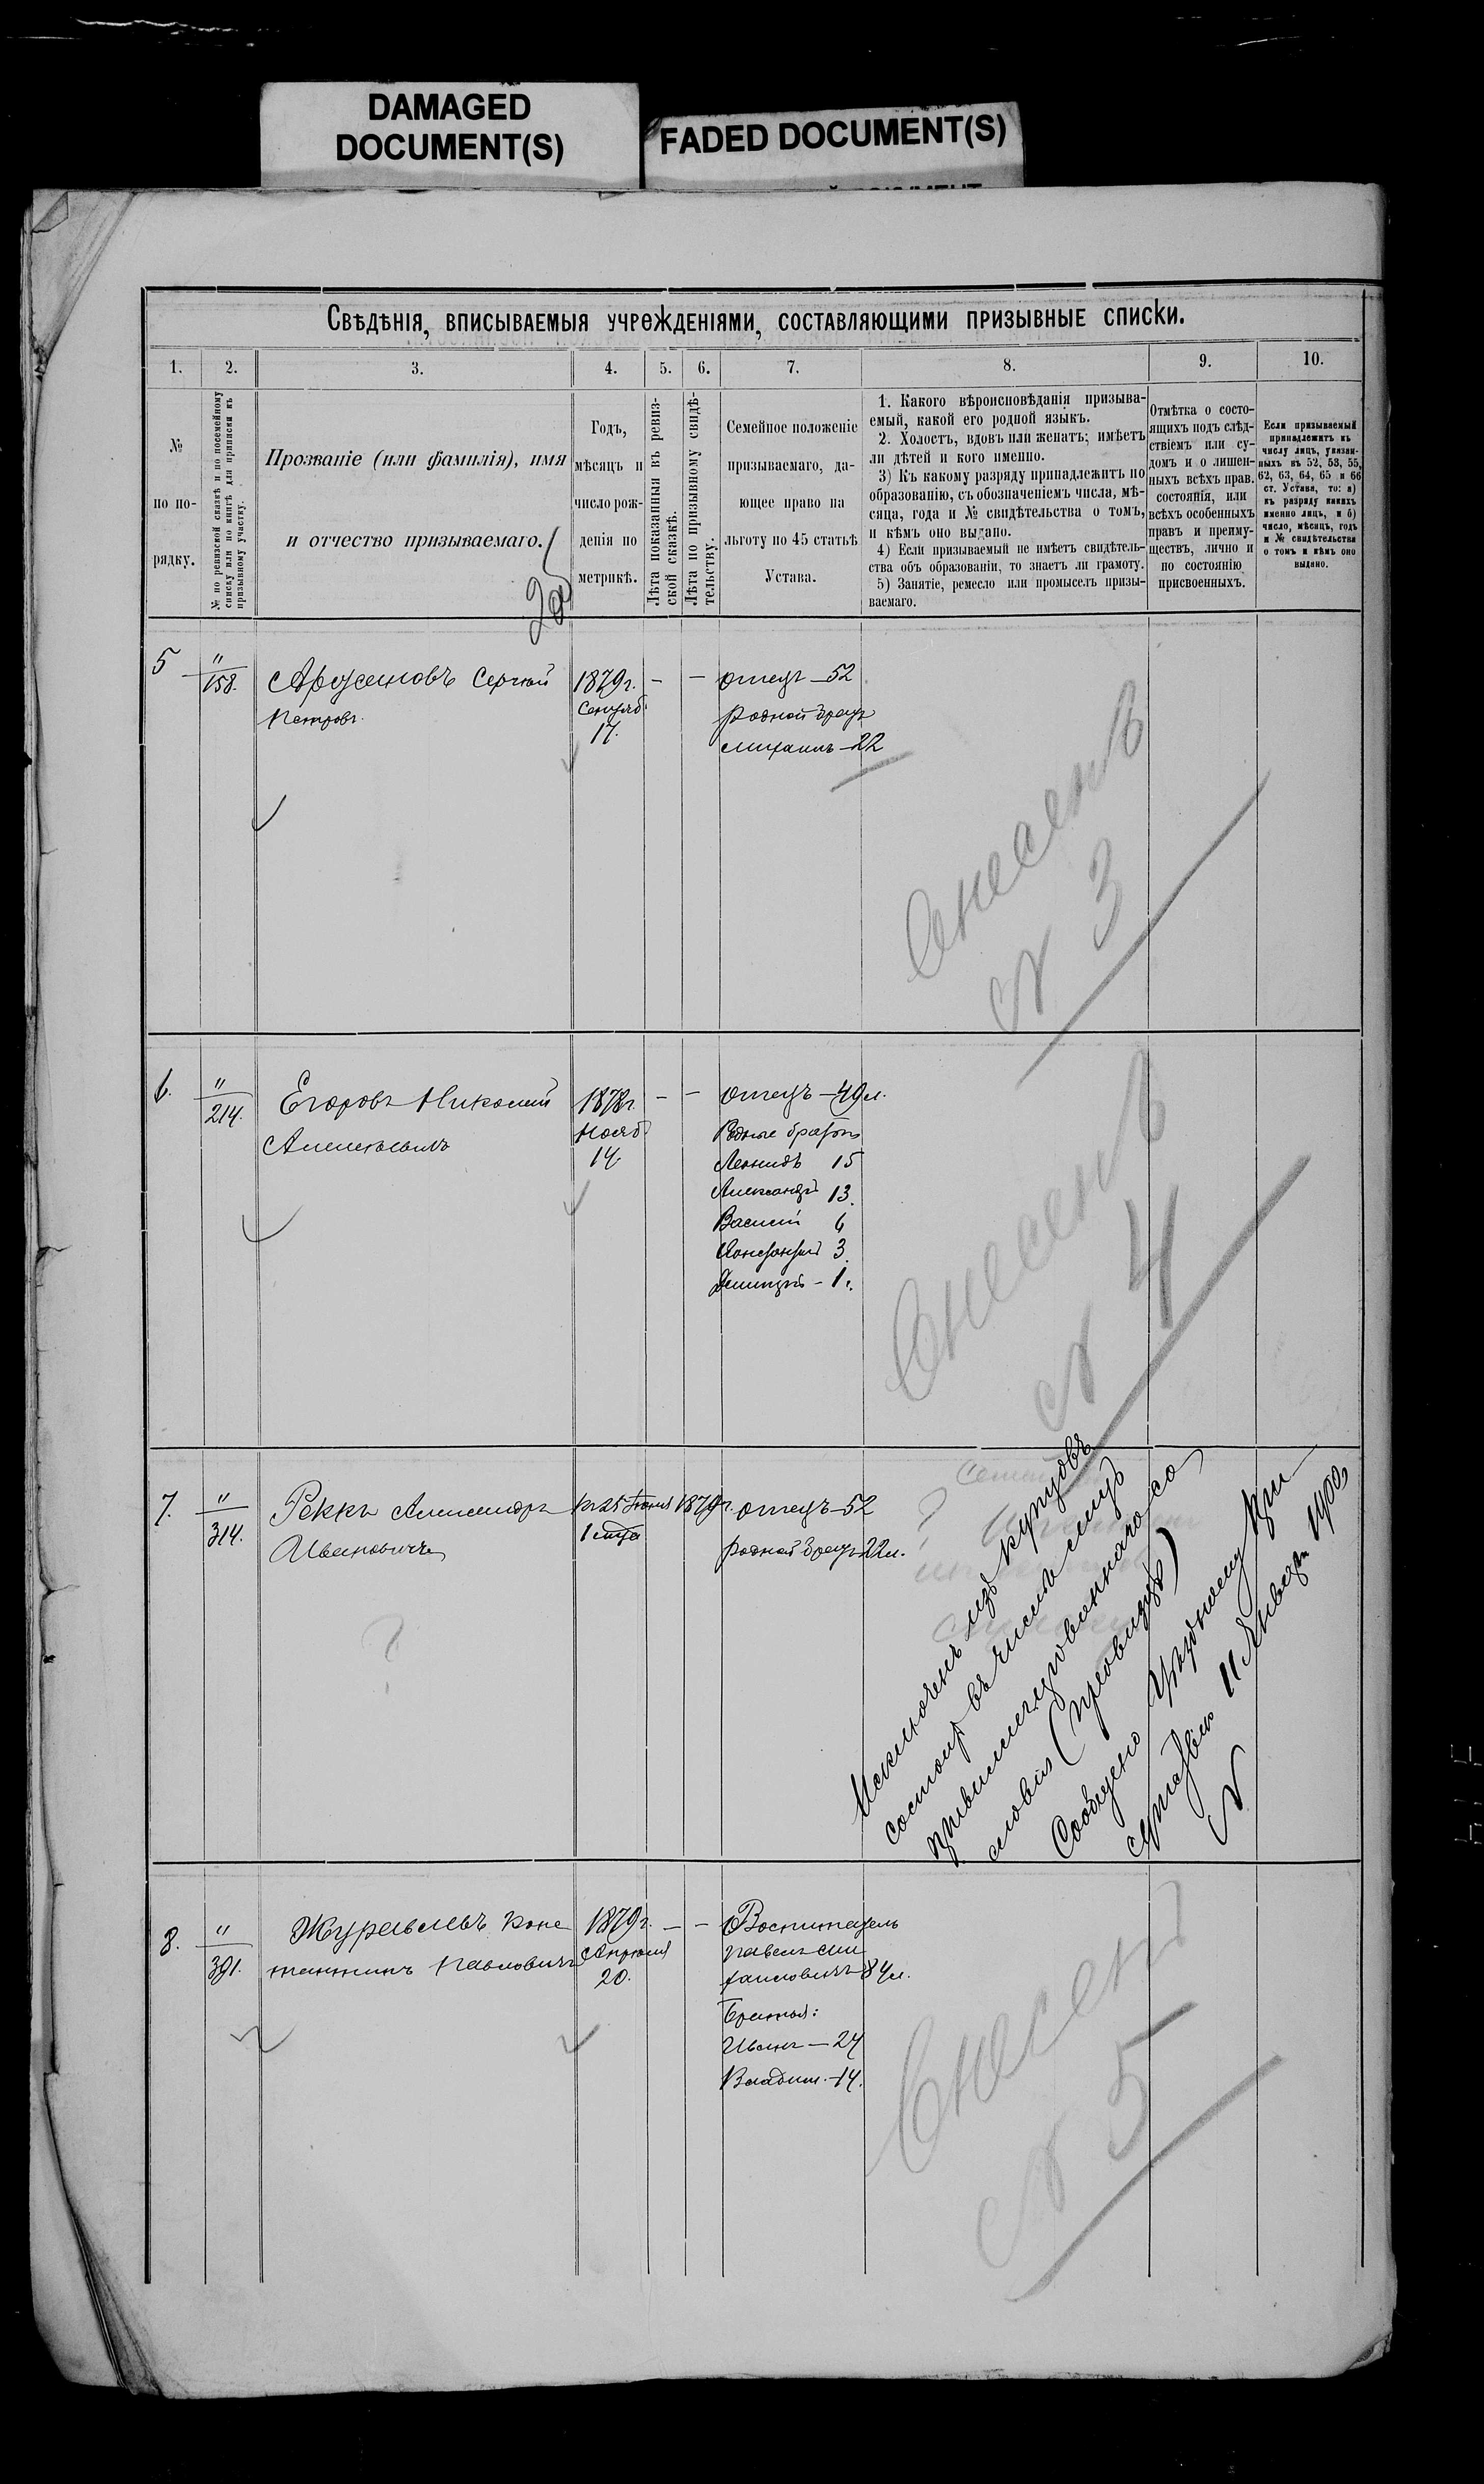 DAMAGED
DOCUMENT(S)
FADED DOCUMENT(S)
Свѣдѣнія, вписываемыя учрежденіями, составляющими призывные списки.
1.
2.
3.
4.
5.
6.
7.
8.
9.
10.
№
по по-
рядку.
№ по ревизской сказкѣ и по посемейному
списку или по книгѣ для приписки къ
призывному участку.
Прозваніе (или фамилія), имя
и отчество призываемаго.
Годъ,
мѣсяцъ и
число рож-
денія по
метрикѣ.
Лѣта показанныя въ ревиз-
ской сказкѣ.
Лѣта по призывному свидѣ-
тельству.
Семейное положеніе
призываемаго, да-
ющее право на
льготу по 45 статьѣ
Устава.
1. Какого вѣроисповѣданія призыва-
емый, какой его родной языкъ.
2. Холостъ, вдовъ или женатъ; имѣетъ
ли дѣтей и кого именно.
3) Къ какому разряду принадлежитъ по
образованію, съ обозначеніемъ числа, мѣ-
сяца, года и № свидѣтельства о томъ,
и кѣмъ оно выдано.
4) Если призываемый не имѣетъ свидѣтель-
ства объ образованіи, то знаетъ ли грамоту.
5) Занятіе, ремесло или промыселъ призы-
ваемаго.
Отмѣтка о состо-
ящихъ подъ слѣд-
ствіемъ или су-
домъ и о лишен-
ныхъ всѣхъ прав.
состоянія, или
всѣхъ особенныхъ
правъ и преиму-
ществъ, лично и
по состоянію
присвоенныхъ.
Если призываемый
принадлежитъ къ
числу лицъ, указан-
ныхъ въ 52, 53, 55,
62, 63, 64, 65 и 66
ст. Устава, то: а)
къ разряду какихъ
именно лицъ, и б)
число, мѣсяцъ, годъ
и № свидѣтельства
о томъ и кѣмъ оно
выдано.
5
"
158.
Сергѣй
Петровъ
1879 г.
Сентяб.
17.
—
—
отецъ — 52
родной братъ
Михаилъ — 22
Внесенъ
№ 3
6.
"
214.
Егоровъ Николай
Алексѣевичъ
1878 г.
Нояб.
14
—
—
отецъ — 49 л.
Родные братья
Леонидъ 15
Александръ 13.
Василій 6
3.
Дмитрій — 1 г.
Внесенъ
№ 4
7.
"
314.
Реккъ Александръ
Ивановичъ
къ 25 Іюня 1879 г.
отецъ — 52
родной братъ 22 л.
?
Исключенъ изъ купцовъ
состоитъ въ числѣ лицъ
привиллегированнаго со
словія (провизоръ)
Сообщено Уѣздному При
сутствію 11 Января 1900
№
8.
"
391.
Журавлевъ Конс
тантинъ Павловичъ
1879 г.
Апрѣля
20.
—
—
Воспитатель
Павелъ Ми
хайловичъ 84 л.
Братья:
Иванъ — 24
Владим. — 14.
Внесенъ
№ 5